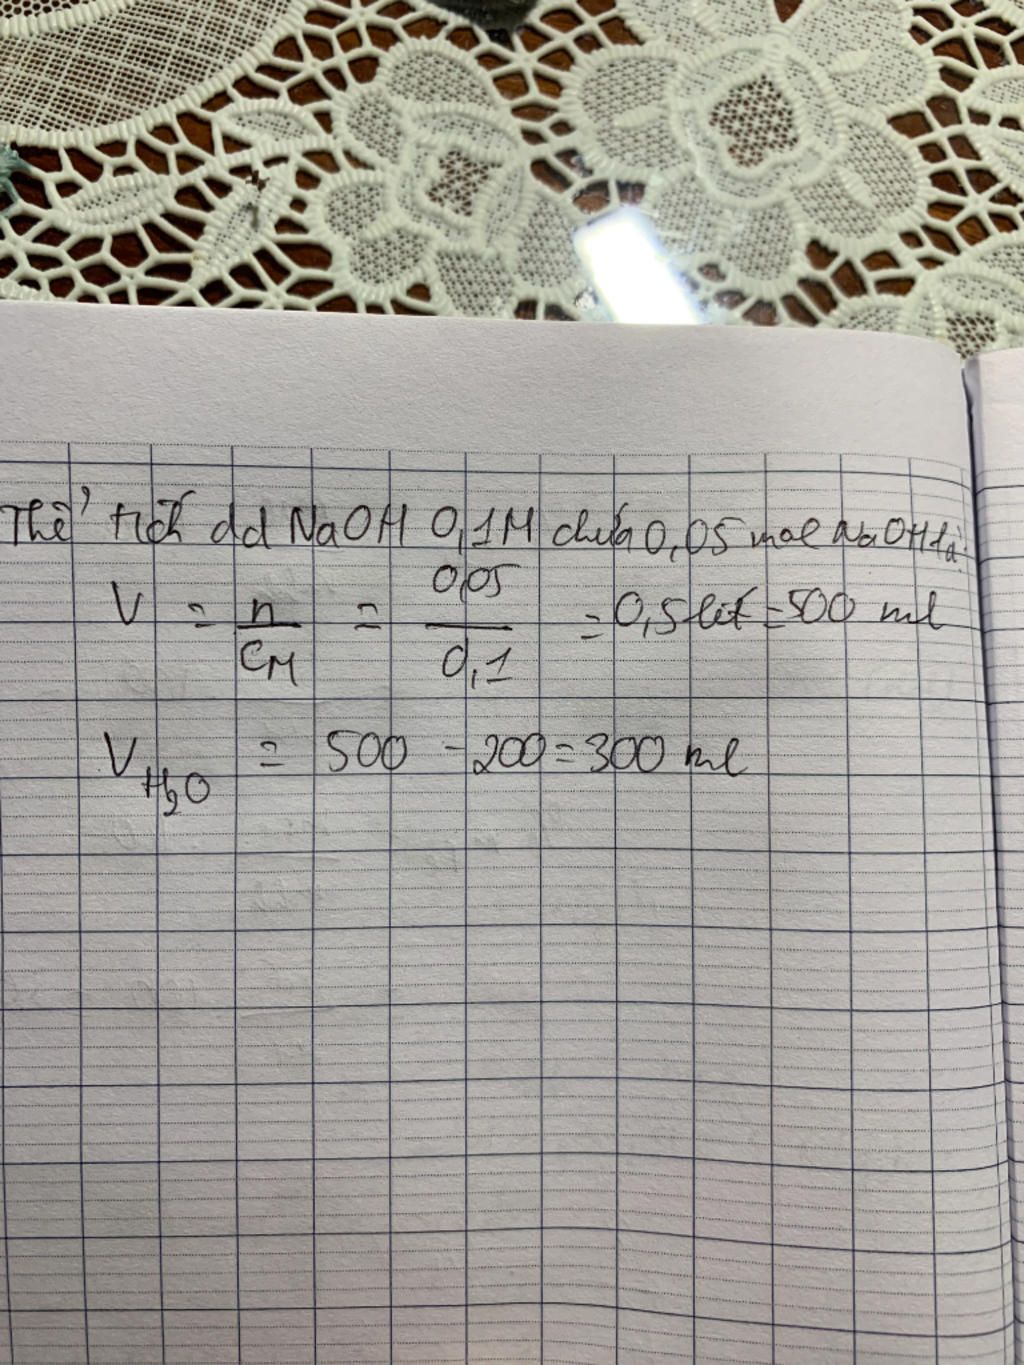 Thể tích dd NaOH 0,1M chứa 0,05 mol NaOH là:
V = n / C_M = 0,05 / 0,1 = 0,5 lít = 500 ml
V_H₂O = 500 - 200 = 300 ml